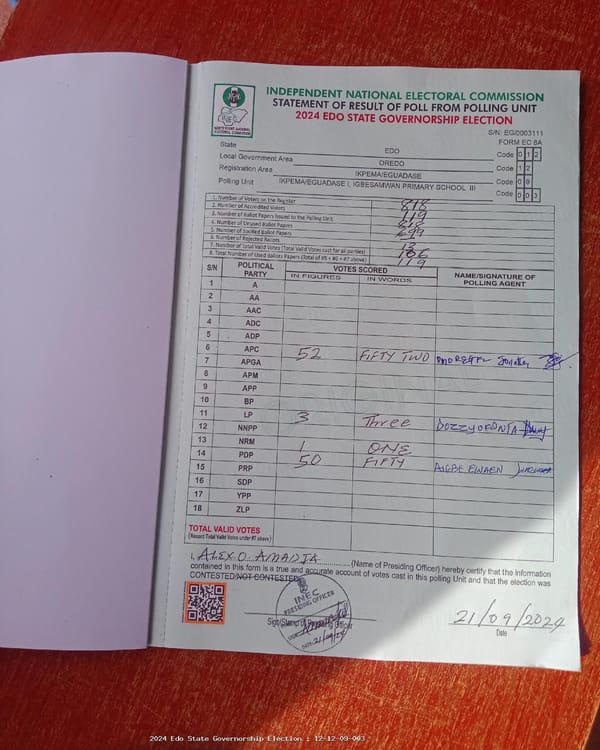 INDEPENDENT NATIONAL ELECTORAL COMMISSION
STATEMENT OF RESULT OF POLL FROM POLLING UNIT
2024 EDO STATE GOVERNORSHIP ELECTION
S/N: EG/0003111
FORM EC 8A
INEC
INDEPENDENT NATIONAL ELECTORAL COMMISSION
State EDO Code 0 1 2
Local Government Area OREDO Code 1 2
Registration Area IKPEMA/EGUADASE Code 0 9
Polling Unit IKPEMA/EGUADASE I, IGBESAMWAN PRIMARY SCHOOL III Code 0 0 3
1. Number of Voters on the Register 818
2. Number of Accredited Voters 119
3. Number of Ballot Papers Issued to the Polling Unit 818
4. Number of Unused Ballot Papers 699
5. Number of Spoiled Ballot Papers
6. Number of Rejected Ballots 13
7. Number of Total Valid Votes (Total Valid Votes cast for all parties) 106
8. Total Number of Used Ballots Papers (Total of #5 + #6 + #7 above) 119
S/N POLITICAL PARTY VOTES SCORED NAME/SIGNATURE OF POLLING AGENT
IN FIGURES IN WORDS
1 A
2 AA
3 AAC
4 ADC
5 ADP
6 APC 52 FIFTY TWO
7 APGA
8 APM
9 APP
10 BP
11 LP 3 Three
12 NNPP
13 NRM 1 ONE
14 PDP 50 FIFTY
15 PRP
16 SDP
17 YPP
18 ZLP
TOTAL VALID VOTES
(Record Total Valid Votes under #7 above)
I, ALEX O. AMADIA (Name of Presiding Officer) hereby certify that the information
contained in this form is a true and accurate account of votes cast in this polling Unit and that the election was
CONTESTED/NOT CONTESTED
INEC
PRESIDING OFFICER
SIGN
DATE: 21/09/24
Sign/Stamp of Presiding Officer
21/09/2024
Date
2024 Edo State Governorship Election : 12-12-09-003